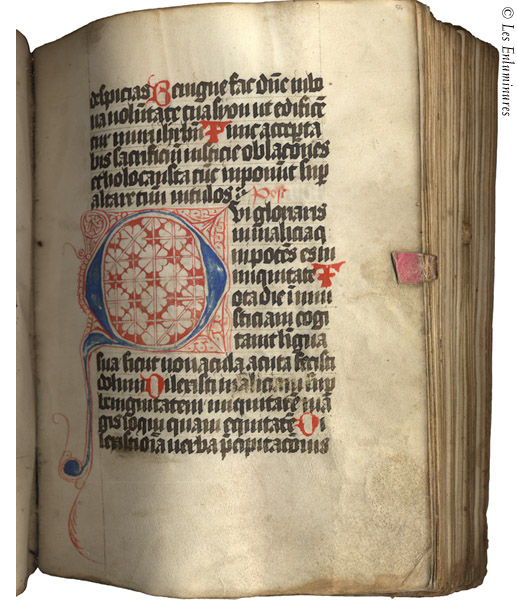 despicias Benigne fac dñe in bo
na volūtate tua syon ut edificē
tur muri ihrlm̄ Tunc accepta
bis sacrificiū iusticie oblacōnes
et holocausta tūc inponūt sup̄
altare tuū vitulos
Qui gloriaris
in malicia q
inpotēs es in
iniquitate T
ota die īniu
sticiam cogi
tavit lingua
sua sicut novacula acuta fecisti
dolum Dilexisti maliciam sup̄
benignitatem iniquitatē ma
gis loqui quam equitatē Di
lexisti oīa verba p̄cipitacōnis
© Les Enluminures